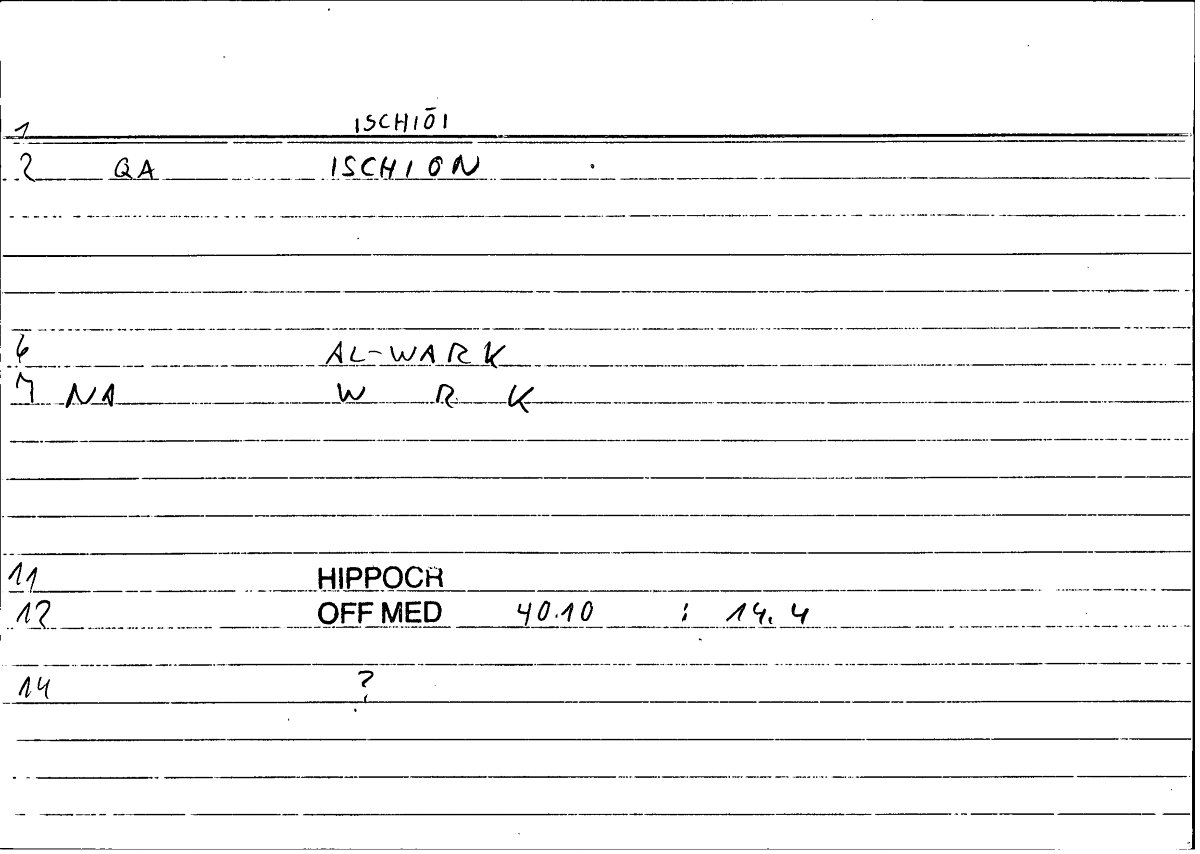 1 ISCHIŌI
2 QA ISCHION
6 AL-WARK
7 NA W R K
11 HIPPOCR
12 OFF MED 40.10 : 14.4
14 ?